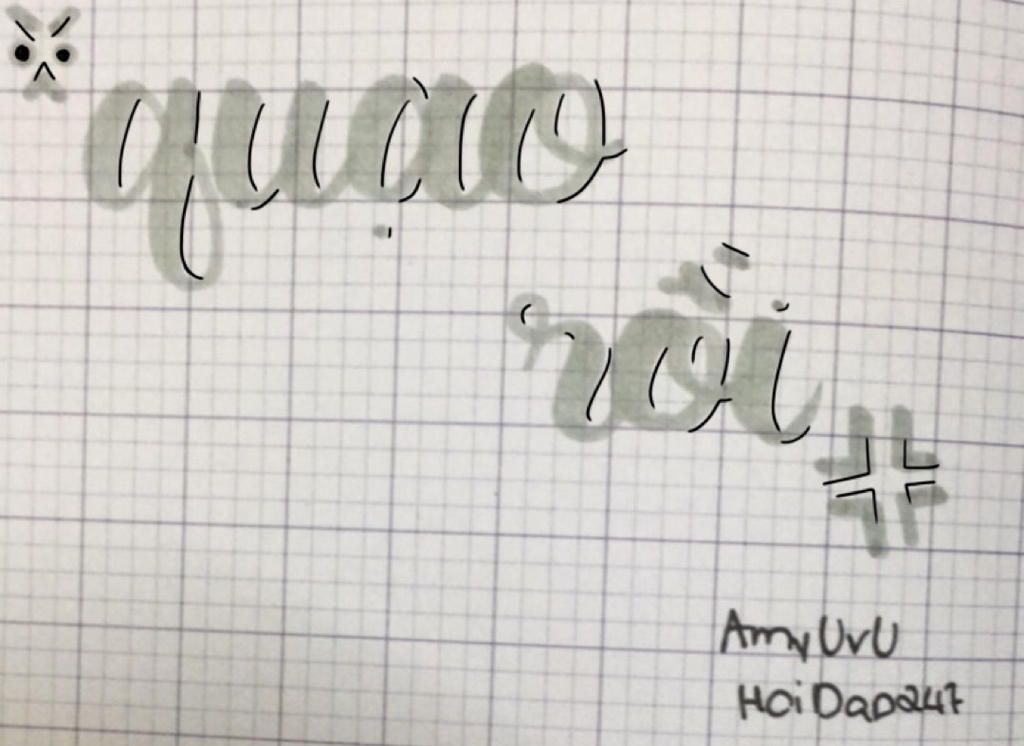 quạo
rồi
Amy UvU
HoiDap247